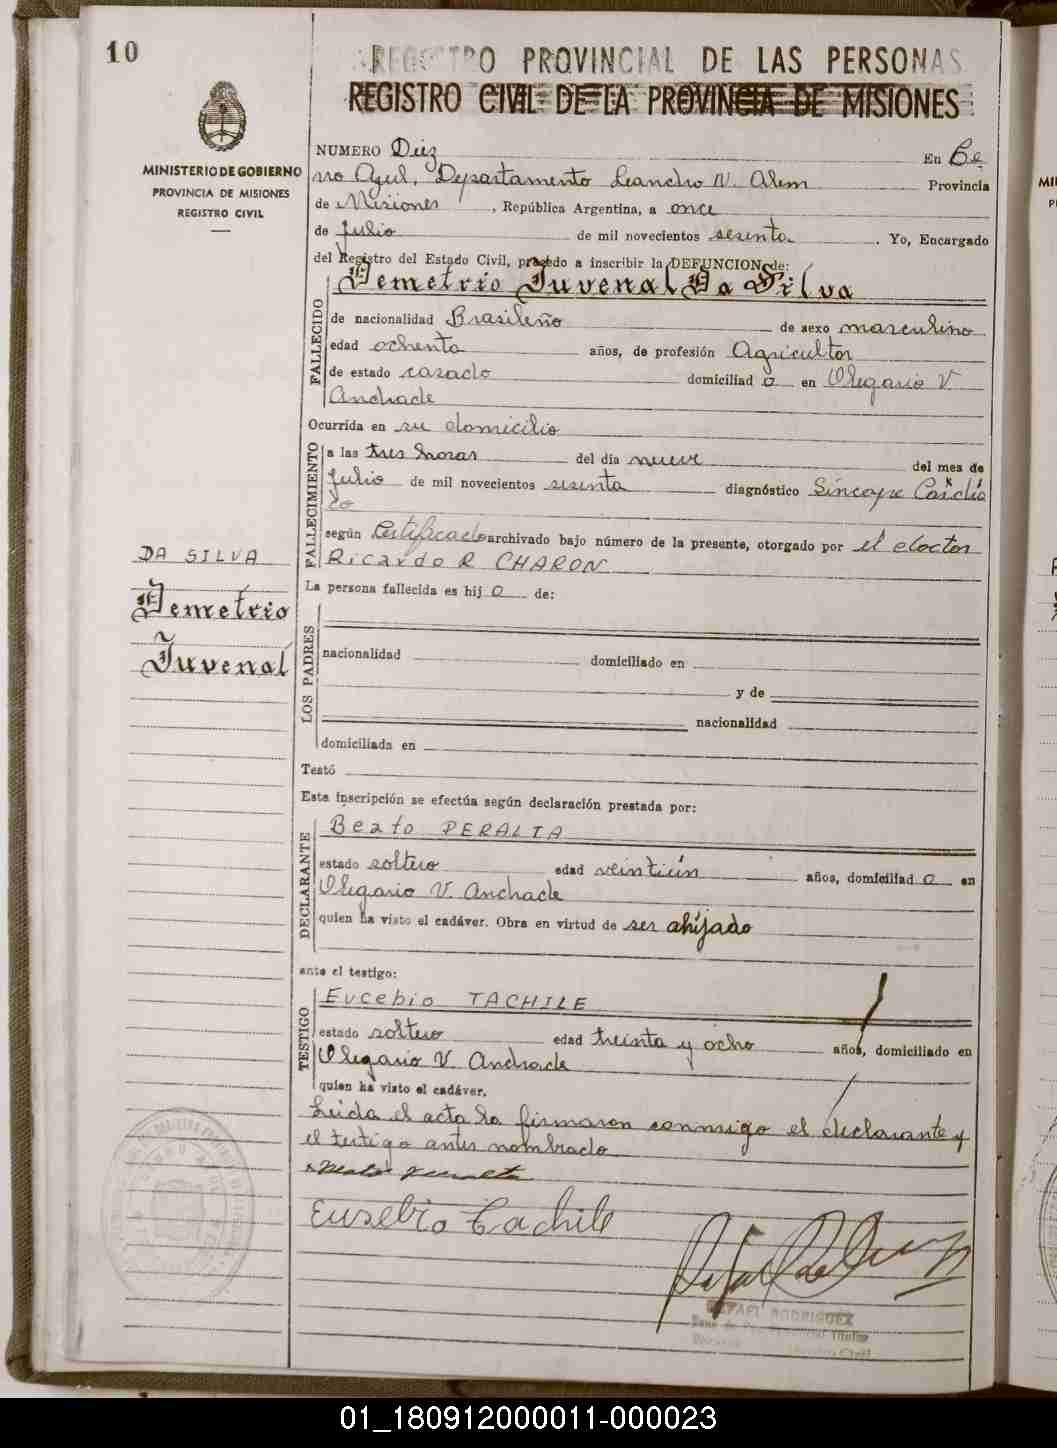 10
REGISTRO PROVINCIAL DE LAS PERSONAS
REGISTRO CIVIL DE LA PROVINCIA DE MISIONES
MINISTERIO DE GOBIERNO
PROVINCIA DE MISIONES
REGISTRO CIVIL
NUMERO Diez En Ce
rro Azul, Departamento Leandro N. Alem Provincia
de Misiones, República Argentina, a once
de Julio de mil novecientos sesenta. Yo, Encargado
del Registro del Estado Civil, procedo a inscribir la DEFUNCION de:
Demetrio Juvenal Da Silva
FALLECIDO
de nacionalidad Brasileño de sexo masculino
edad ochenta años, de profesión Agricultor
de estado casado domiciliad o en Olegario V.
Andrade
Ocurrida en su domicilio
FALLECIMIENTO
a las tres horas del día nueve del mes de
Julio de mil novecientos sesenta diagnóstico Síncope Cardía
co
según Certificado archivado bajo número de la presente, otorgado por el doctor
Ricardo R CHARON
DA SILVA
Demetrio
Juvenal
La persona fallecida es hij o de:
LOS PADRES
nacionalidad domiciliado en
y de
nacionalidad
domiciliada en
Testó
Esta inscripción se efectúa según declaración prestada por:
DECLARANTE
Beato PERALTA
estado soltero edad veintiún años, domiciliad o en
Olegario V. Andrade
quien ha visto el cadáver. Obra en virtud de ser ahijado
ante el testigo:
TESTIGO
Eucebio TACHILE
estado soltero edad treinta y ocho años, domiciliado en
Olegario V. Andrade
quien ha visto el cadáver.
Leida el acta la firmaron conmigo el declarante y
el testigo antes nombrado
Eusebio Tachile
RAFAEL RODRIGUEZ
01_180912000011-000023